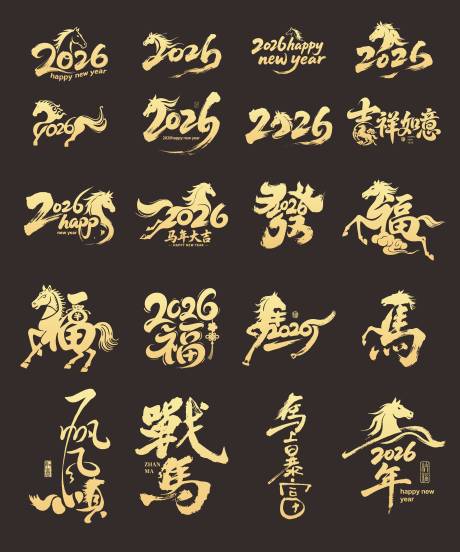 2026
happy new year
2026
2026 happy
new year
2026
2026
2026
2026 happy new year
2026
吉祥如意
2026
happy
new year
2026
马年大吉
HAPPY NEW YEAR
2026
發
福
福
2026
福
2026
馬
一帆风顺
戰馬
ZHAN
MA
馬上暴富
2026
年
happy new
year